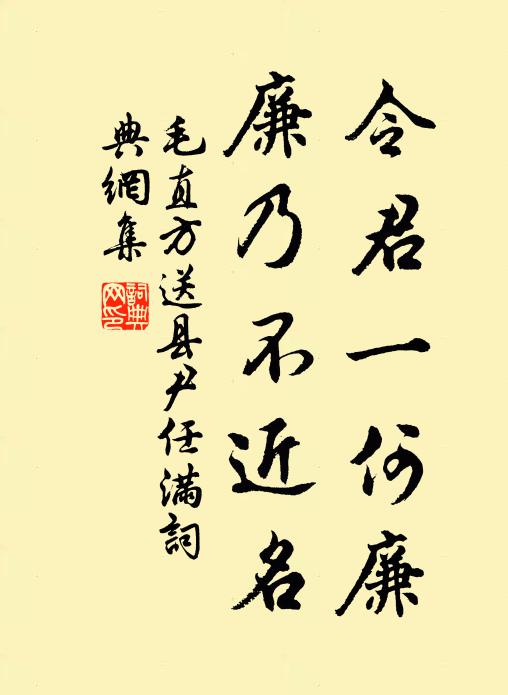 令君一何廉
廉乃不近名
毛直方送县尹任满詞
典網集
詞典網印